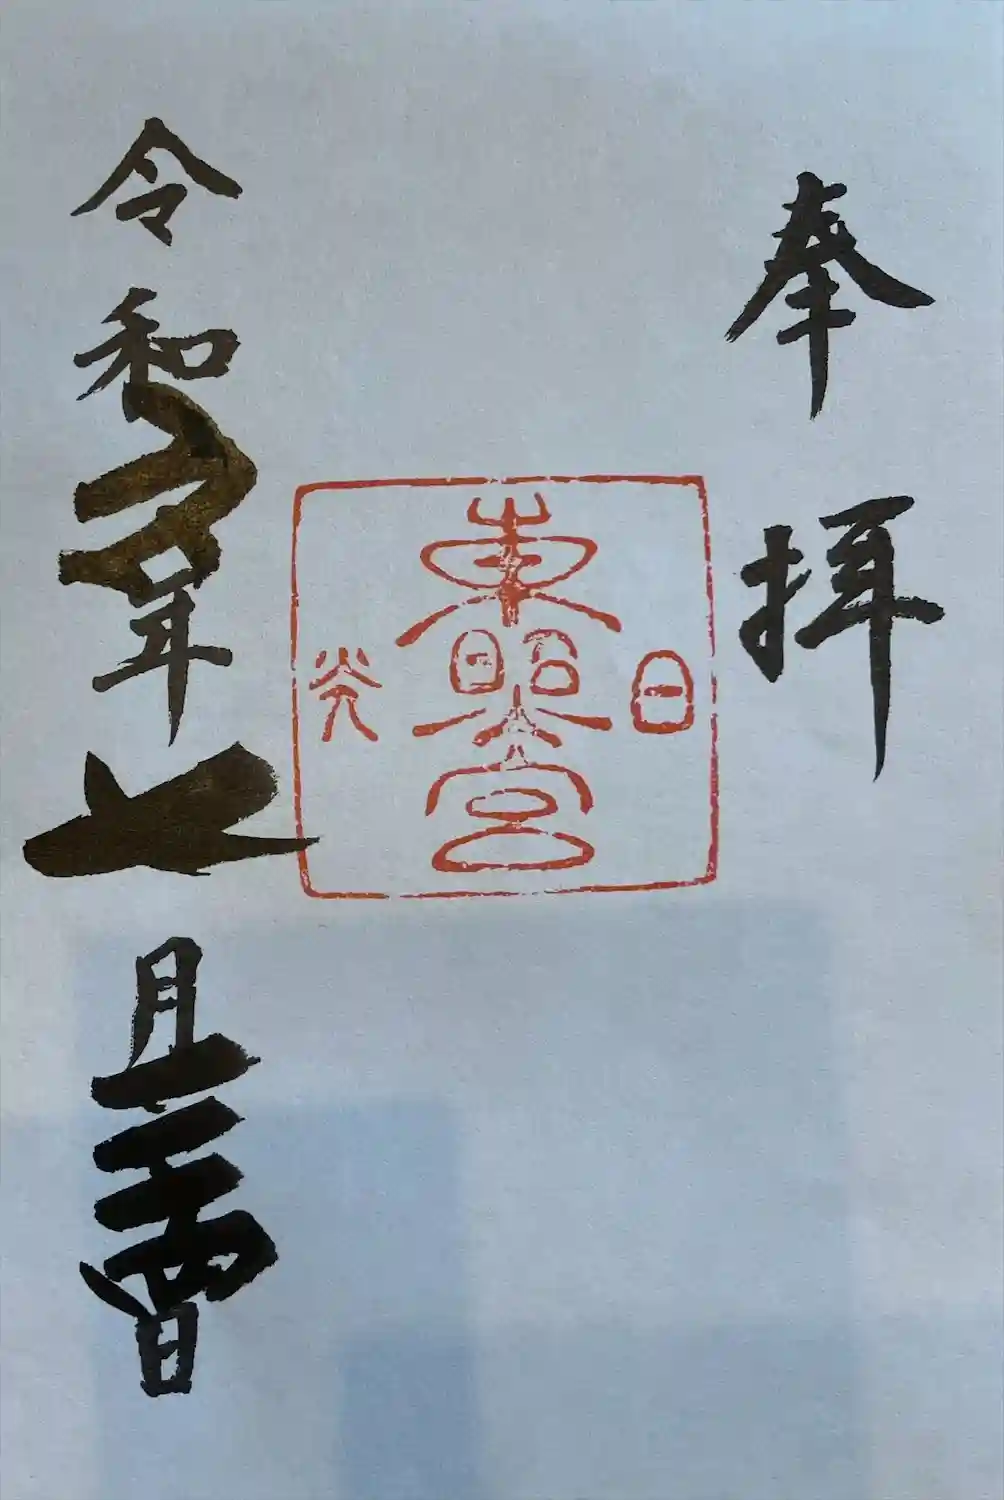 奉拝
日光
東照宮
令和 年 月 日